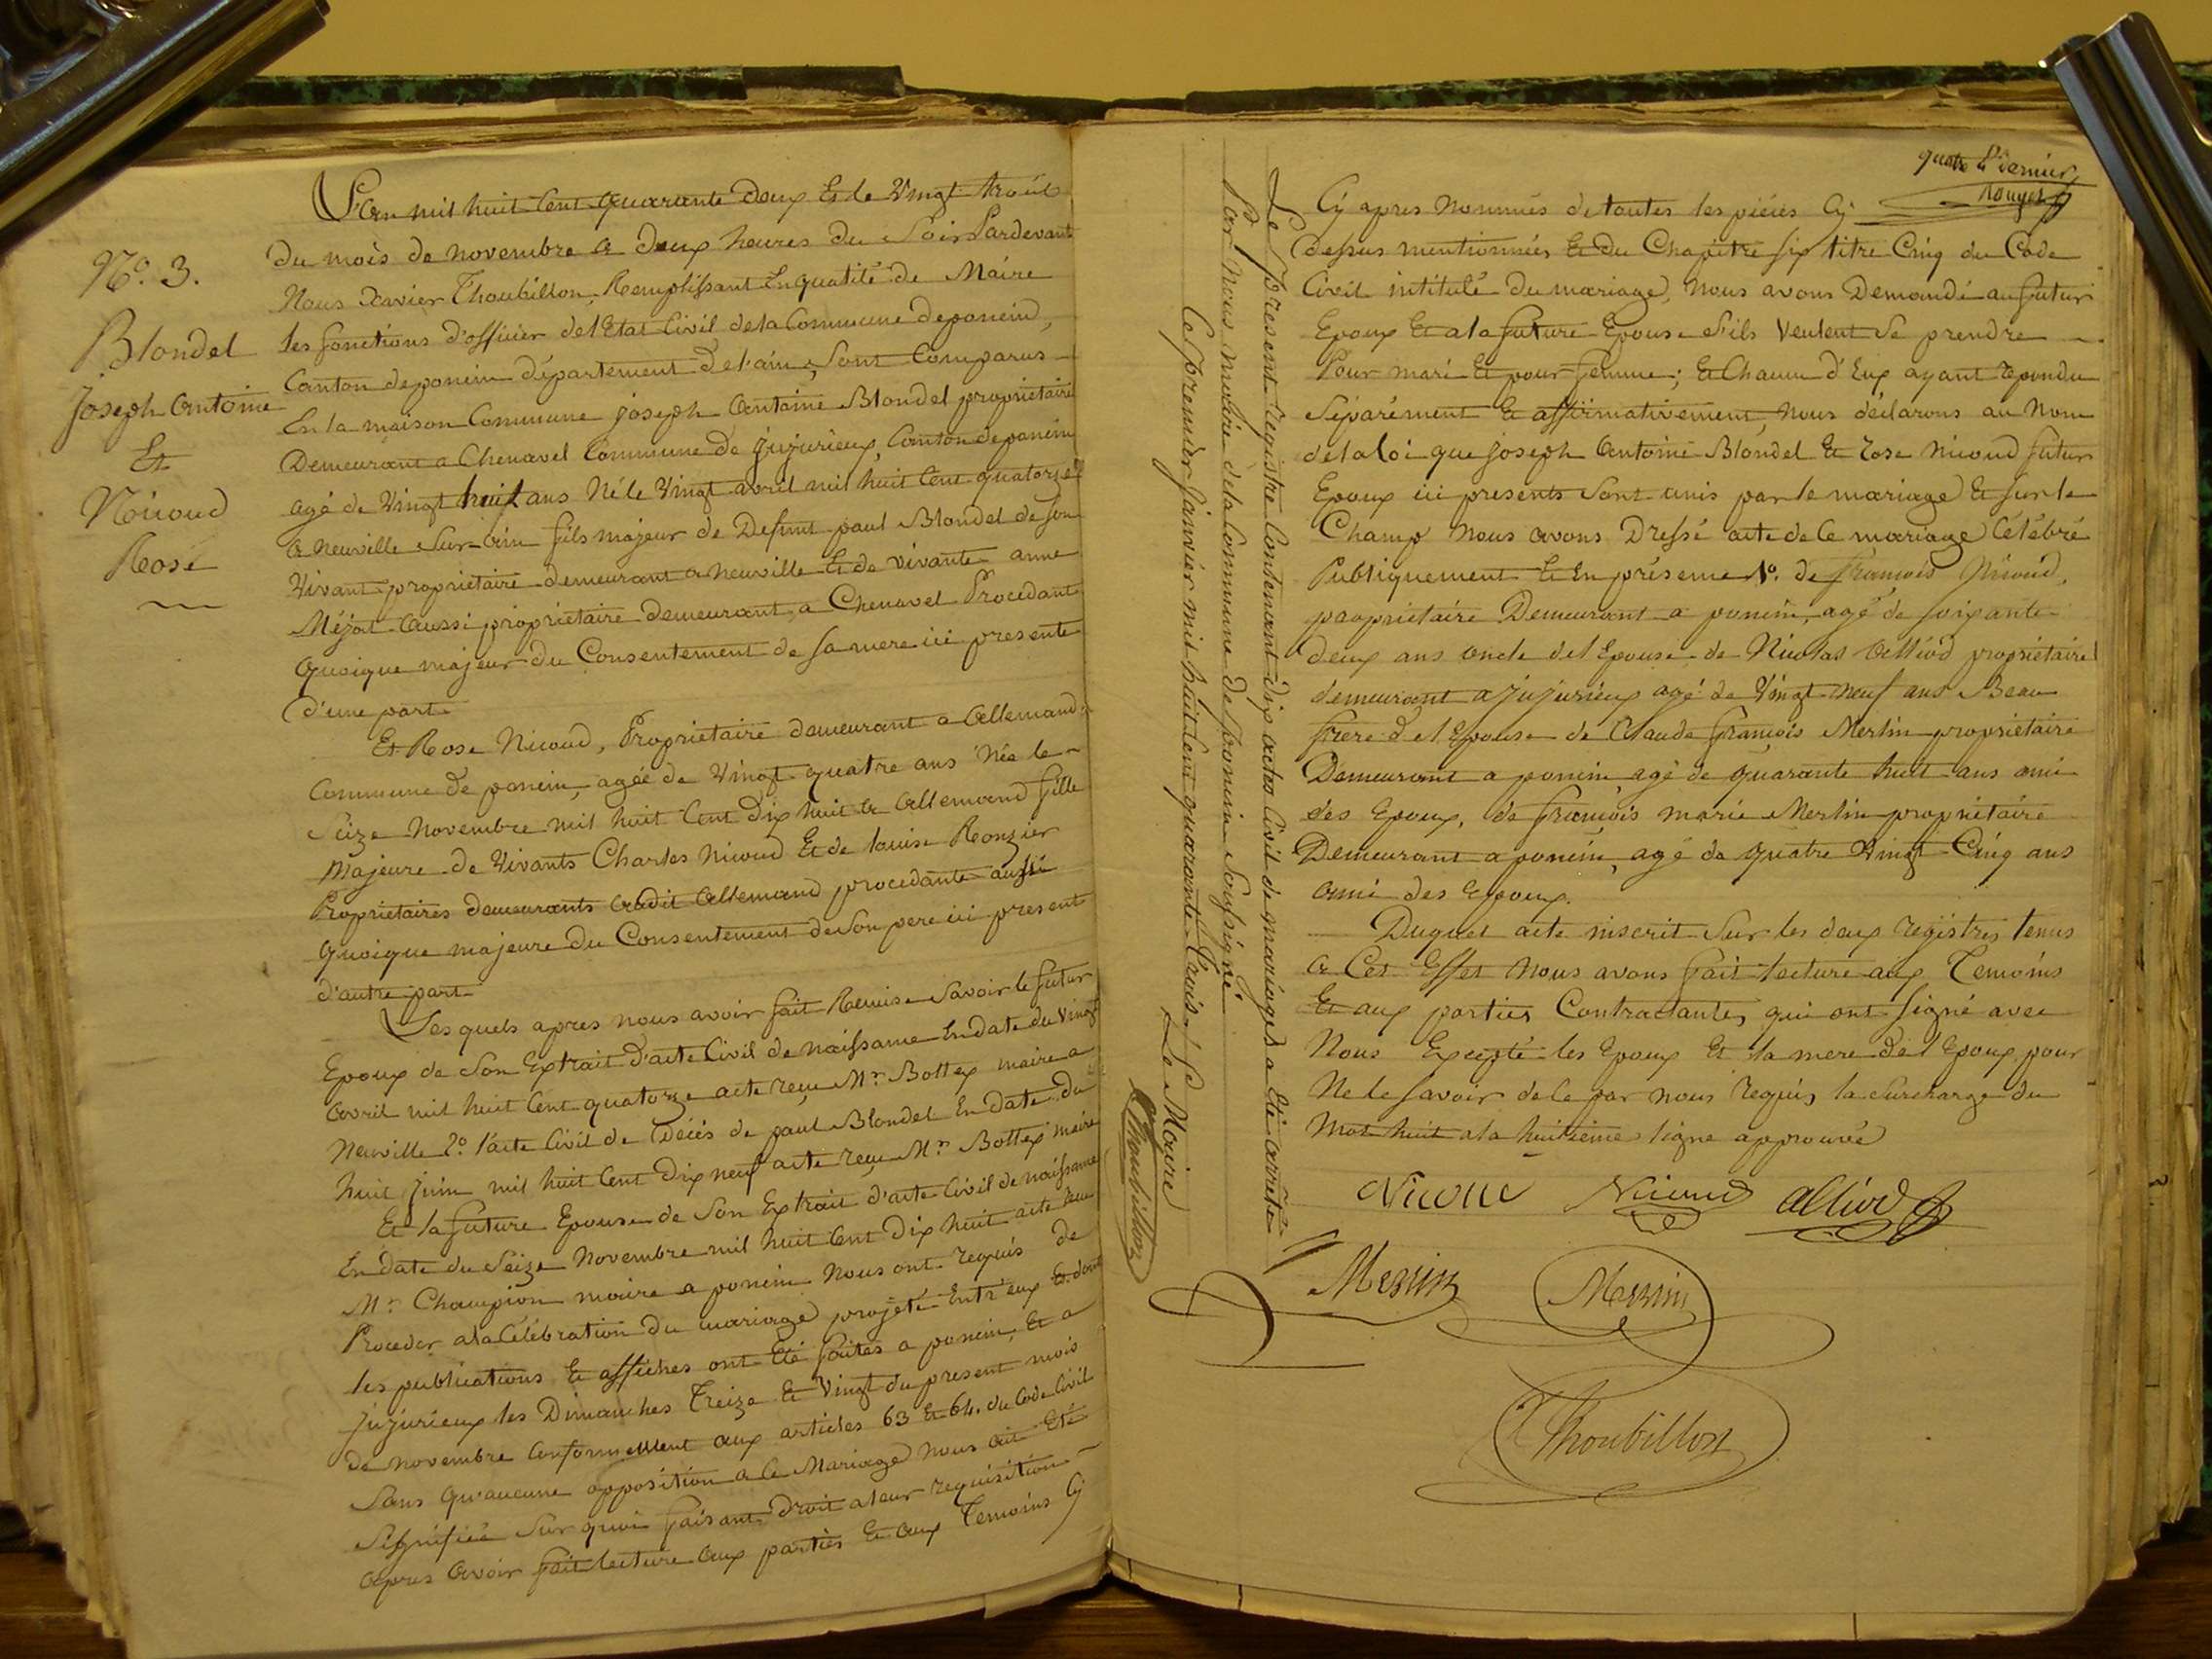 N.° 3.
Blondel
Joseph Antoine
Et
Nicoud
Rose
L'an mil huit Cent quarante deux Et le Vingt trois
du mois de novembre a deux heures du Soir Pardevant
Nous Xavier Thoubillon, Remplissant En qualité de Maire
les fonctions d'officier de l'Etat Civil de la Commune de poncin,
Canton de poncin département de l'ain, Sont Comparus
En la maison Commune joseph Antoine Blondel propriétaire
Demeurant a Chenavel Commune de jujurieux, Canton de poncin
agé de Vingt huit ans Né le Vingt avril mil huit Cent quatorze
a Neuville Sur ain fils majeur de Defunt paul Blondel de son
Vivant propriétaire demeurant a neuville Et de vivante anne
Méjat aussi propriétaire demeurant a Chenavel Procedant
quoique majeur du Consentement de sa mere ici presente
d'une part
Et Rose Nicoud, Propriétaire demeurant a Allemand
Commune de poncin, agée de Vingt quatre ans Née le
Seize Novembre mil huit Cent Dix huit a Allemand fille
Majeure de Vivants Charles Nicoud Et de louise Ronzier
Propriétaires demeurants audit Allemand procedante aussi
quoique majeure du Consentement de Son pere ici present
d'autre part
Les quels apres nous avoir fait Remise Savoir le futur
Epoux de Son Extrait d'acte Civil de naissance En date du Vingt
avril mil huit Cent quatorze acte reçu Mr. Bottex maire a
Neuville 2.° l'acte Civil de Décés de paul Blondel En date du
huit juin mil huit Cent Dix neuf acte reçu Mr. Bottex maire
Et la future Epouse de Son Extrait d'acte Civil de naissance
En date du Seize Novembre mil huit Cent Dix huit acte reçu
Mr. Champion maire a poncin Nous ont requis de
Proceder a la Célébration du mariage projeté Entr'eux Et dont
les publications Et affiches ont Eté faites a poncin, Et a
jujurieux les Dimanches Treize Et Vingt du present mois
de novembre Conformement aux articles 63 Et 64. du Code Civil
Sans qu'aucune opposition a Ce Mariage nous ait Eté
Signifiée Sur quoi faisant Droit a leur requisition
apres avoir fait lecture aux parties Et aux Temoins Cy
Le present registre Contenant dix actes Civil de mariages a Eté arrêté
Par Nous maire de la Commune de poncin Soussigné
Ce premier janvier mil huit Cent quarante trois. Le Maire
Thoubillon
quatre & dernier
Rouyer
Cy apres Nommés de toutes les piéces Cy
dessus mentionnées Et du Chapitre six titre Cinq du Code
Civil intitulé Du mariage, Nous avons Demandé au futur
Epoux Et a la future Epouse S'ils Veulent Se prendre
Pour mari Et pour femme; Et Chacun d'Eux ayant repondu
Séparément Et affirmativement, Nous déclarons au Nom
de la loi que joseph Antoine Blondel Et rose Nicoud futur
Epoux ici presents Sont unis par le mariage Et sur le
Champ Nous avons Dressé acte de Ce mariage Célébré
Publiquement Et En présence 1.° de françois Nicoud,
propriétaire Demeurant a poncin, agé de soixante
deux ans oncle de l'Epouse de Nicolas Alliod propriétaire
demeurant a jujurieux agé de Vingt neuf ans Beau
frere de l'Epouse de Claude françois Merlin propriétaire
Demeurant a poncin agé de quarante huit ans ami
des Epoux, de françois marie Merlin propriétaire
Demeurant a poncin, agé de quatre Vingt Cinq ans
ami des Epoux.
Duquel acte inscrit Sur les deux registres tenus
a Cet Effet Nous avons fait lecture aux Temoins
Et aux parties Contractantes, qui ont signé avec
Nous Excepté les Epoux Et la mere de l'Epoux pour
Ne le savoir de Ce par nous requis la Surcharge du
Mot huit a la huitième ligne approuvée
Nicoud Nicoud alliod
Merlin Merlin
Thoubillon